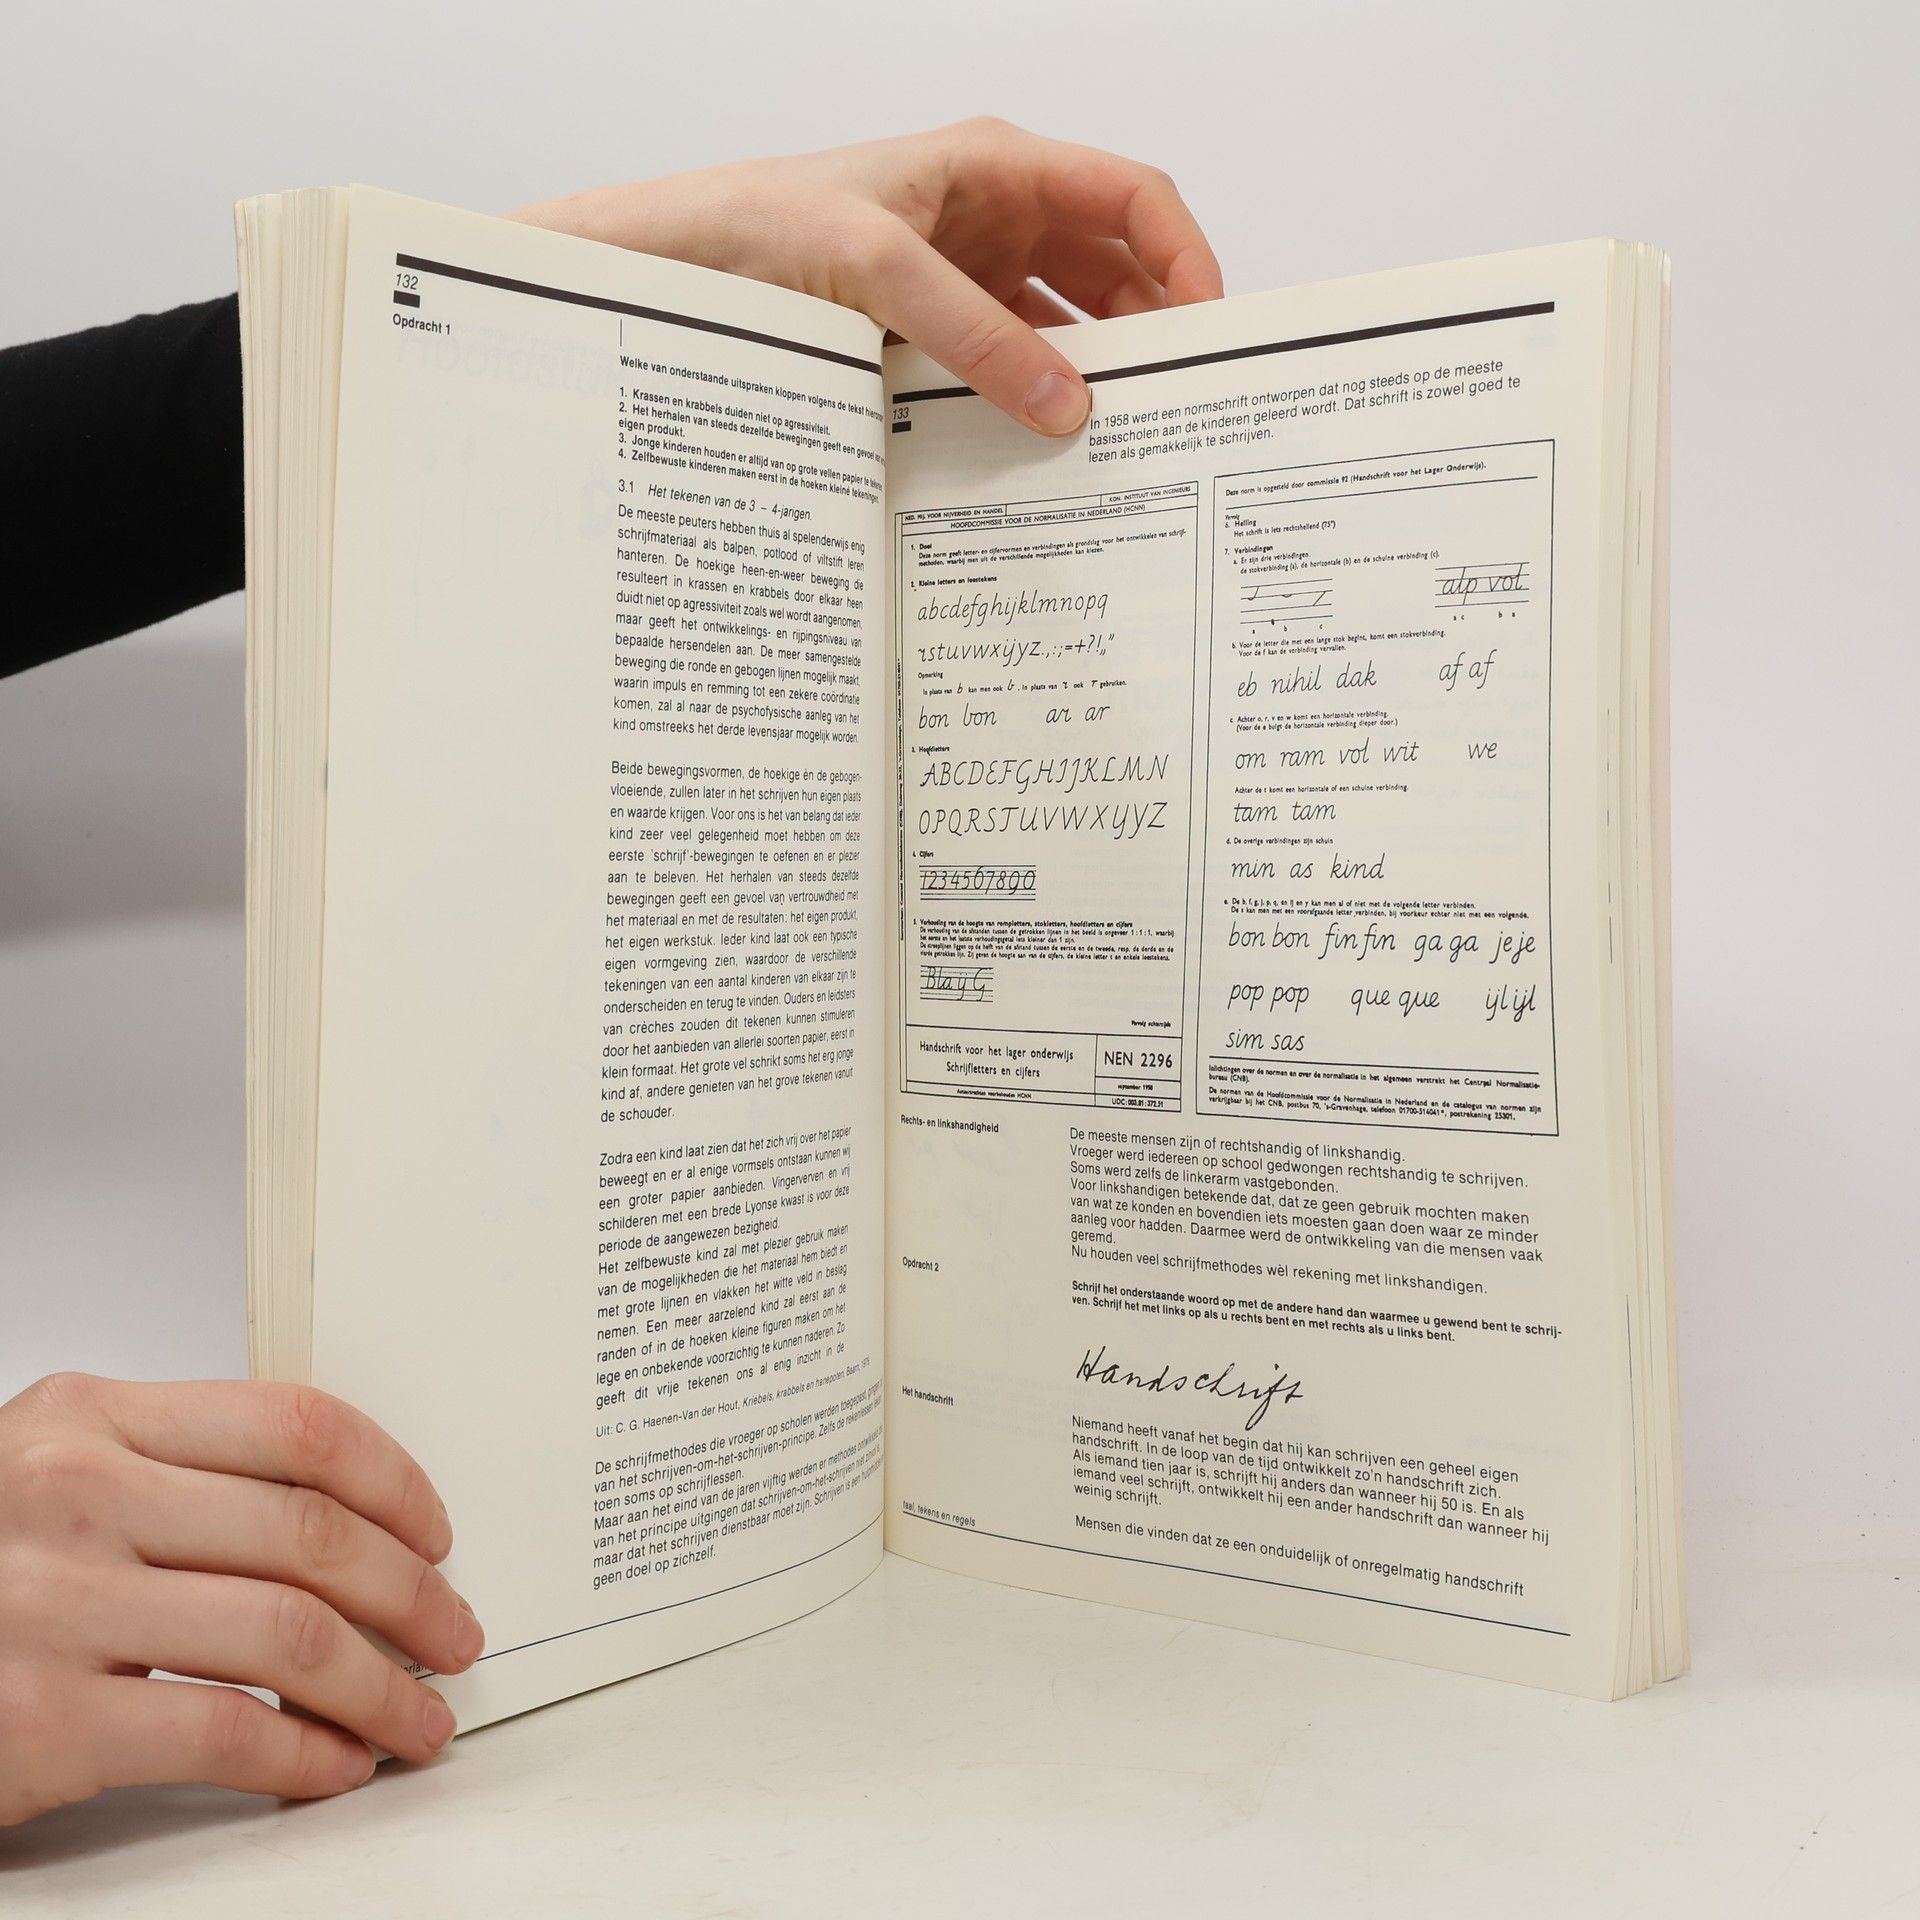 132
Opdracht 1
Welke van onderstaande uitspraken kloppen volgens de tekst
1. Krassen en krabbels duiden niet op agressiviteit.
2. Het herhalen van steeds dezelfde bewegingen geeft een gevoel van
eigen produkt.
3. Jonge kinderen houden er altijd van op grote vellen papier te tekenen.
4. Zelfbewuste kinderen maken eerst in de hoeken kleine tekeningen.
3.1 Het tekenen van de 3 – 4-jarigen.
De meeste peuters hebben thuis al spelenderwijs enig
schrijfmateriaal als balpen, potlood of viltstift leren
hanteren. De hoekige heen-en-weer beweging die
resulteert in krassen en krabbels door elkaar heen
duidt niet op agressiviteit zoals wel wordt aangenomen,
maar geeft het ontwikkelings- en rijpingsniveau van
bepaalde hersendelen aan. De meer samengestelde
beweging die ronde en gebogen lijnen mogelijk maakt,
waarin impuls en remming tot een zekere coördinatie
komen, zal al naar de psychofysische aanleg van het
kind omstreeks het derde levensjaar mogelijk worden.
Beide bewegingsvormen, de hoekige én de gebogen-
vloeiende, zullen later in het schrijven hun eigen plaats
en waarde krijgen. Voor ons is het van belang dat ieder
kind zeer veel gelegenheid moet hebben om deze
eerste 'schrijf'-bewegingen te oefenen en er plezier
aan te beleven. Het herhalen van steeds dezelfde
bewegingen geeft een gevoel van vertrouwdheid met
het materiaal en met de resultaten: het eigen produkt,
het eigen werkstuk. Ieder kind laat ook een typische
eigen vormgeving zien, waardoor de verschillende
tekeningen van een aantal kinderen van elkaar zijn te
onderscheiden en terug te vinden. Ouders en leidsters
van crèches zouden dit tekenen kunnen stimuleren
door het aanbieden van allerlei soorten papier, eerst in
klein formaat. Het grote vel schrikt soms het erg jonge
kind af, andere genieten van het grove tekenen vanuit
de schouder.
Zodra een kind laat zien dat het zich vrij over het papier
beweegt en er al enige vormsels ontstaan kunnen wij
een groter papier aanbieden. Vingerverven en vrij
schilderen met een brede Lyonse kwast is voor deze
periode de aangewezen bezigheid.
Het zelfbewuste kind zal met plezier gebruik maken
van de mogelijkheden die het materiaal hem biedt en
met grote lijnen en vlakken het witte veld in beslag
nemen. Een meer aarzelend kind zal eerst aan de
randen of in de hoeken kleine figuren maken om het
lege en onbekende voorzichtig te kunnen naderen. Zo
geeft dit vrije tekenen ons al enig inzicht in de
Uit: C. G. Haenen-Van der Hout, Kriebels, krabbels en hanepoten, Baarn, 1976
De schrijfmethodes die vroeger op scholen werden toegepast, gingen
van het schrijven-om-het-schrijven-principe. Zelfs de rekenlessen
toen soms op schrijflessen.
Maar aan het eind van de jaren vijftig werden er methodes ontwikkeld
van het principe uitgingen dat schrijven-om-het-schrijven niet zinvol is,
maar dat het schrijven dienstbaar moet zijn. Schrijven is een hulpmiddel
geen doel op zichzelf.
133
In 1958 werd een normschrift ontworpen dat nog steeds op de meeste
basisscholen aan de kinderen geleerd wordt. Dat schrift is zowel goed te
lezen als gemakkelijk te schrijven.
NED. MIJ. VOOR NIJVERHEID EN HANDEL KON. INSTITUUT VAN INGENIEURS
HOOFDCOMMISSIE VOOR DE NORMALISATIE IN NEDERLAND (HCNN)
1. Doel
Deze norm geeft letter- en cijfervormen en verbindingen als grondslag voor het ontwikkelen van schrijf-
methoden, waarbij men uit de verschillende mogelijkheden kan kiezen.
2. Kleine letters en leestekens
abcdefghijklmnopq
rstuvwxijyz.,:;=+?!„”
Opmerking
In plaats van b kan men ook b. In plaats van r ook r gebruiken.
bon bon ar ar
3. Hoofdletters
ABCDEFGHIJKLMN
OPQRSTUVWXYYZ
4. Cijfers
1234567890
5. Verhouding van de hoogte van rompletters, stokletters, hoofdletters en cijfers
De verhouding van de afstanden tussen de getrokken lijnen in het beeld is ongeveer 1:1:1, waarbij
het eerste en het laatste verhoudingsgetal iets kleiner dan 1 zijn.
De streeplijnen liggen op de helft van de afstand tussen de eerste en de tweede, resp. de derde en de
vierde getrokken lijn. Zij geven de hoogte aan van de cijfers, de kleine letter t en enkele leestekens.
Bla ij G
Vervolg achterzijde
Handschrift voor het lager onderwijs
Schrijfletters en cijfers
NEN 2296
september 1958
Auteursrechten voorbehouden HCNN
UDC: 003.81:372.51
Deze norm is opgesteld door commissie 92 (Handschrift voor het Lager Onderwijs).
Vervolg
6. Helling
Het schrift is iets rechtshellend (75°)
7. Verbindingen
a. Er zijn drie verbindingen
de stokverbinding (a), de horizontale (b) en de schuine verbinding (c).
alp vol
a b c a c b a
b. Voor de letter die met een lange stok begint, komt een stokverbinding.
Voor de f kan de verbinding vervallen.
eb nihil dak af af
c Achter o, r, v en w komt een horizontale verbinding.
(Voor de e buigt de horizontale verbinding dieper door.)
om ram vol wit we
Achter de t komt een horizontale of een schuine verbinding.
tam tam
d. De overige verbindingen zijn schuin
min as kind
e. De b, f, g, j, p, q, en ij en y kan men al of niet met de volgende letter verbinden.
De s kan men met een voorafgaande letter verbinden, bij voorkeur echter niet met een volgende.
bon bon fin fin ga ga je je
pop pop que que ijl ijl
sim sas
Inlichtingen over de normen en over de normalisatie in het algemeen verstrekt het Centraal Normalisatie-
bureau (CNB).
De normen van de Hoofdcommissie voor de Normalisatie in Nederland en de catalogus van normen zijn
verkrijgbaar bij het CNB, postbus 70, 's-Gravenhage, telefoon 01700-514041*, postrekening 25301.
Rechts- en linkshandigheid
De meeste mensen zijn of rechtshandig of linkshandig.
Vroeger werd iedereen op school gedwongen rechtshandig te schrijven.
Soms werd zelfs de linkerarm vastgebonden.
Voor linkshandigen betekende dat, dat ze geen gebruik mochten maken
van wat ze konden en bovendien iets moesten gaan doen waar ze minder
aanleg voor hadden. Daarmee werd de ontwikkeling van die mensen vaak
geremd.
Nu houden veel schrijfmethodes wèl rekening met linkshandigen.
Opdracht 2
Schrijf het onderstaande woord op met de andere hand dan waarmee u gewend bent te schrij-
ven. Schrijf het met links op als u rechts bent en met rechts als u links bent.
Handschrift
Het handschrift
Niemand heeft vanaf het begin dat hij kan schrijven een geheel eigen
handschrift. In de loop van de tijd ontwikkelt zo'n handschrift zich.
Als iemand tien jaar is, schrijft hij anders dan wanneer hij 50 is. En als
iemand veel schrijft, ontwikkelt hij een ander handschrift dan wanneer hij
weinig schrijft.
Mensen die vinden dat ze een onduidelijk of onregelmatig handschrift
taal, tekens en regels